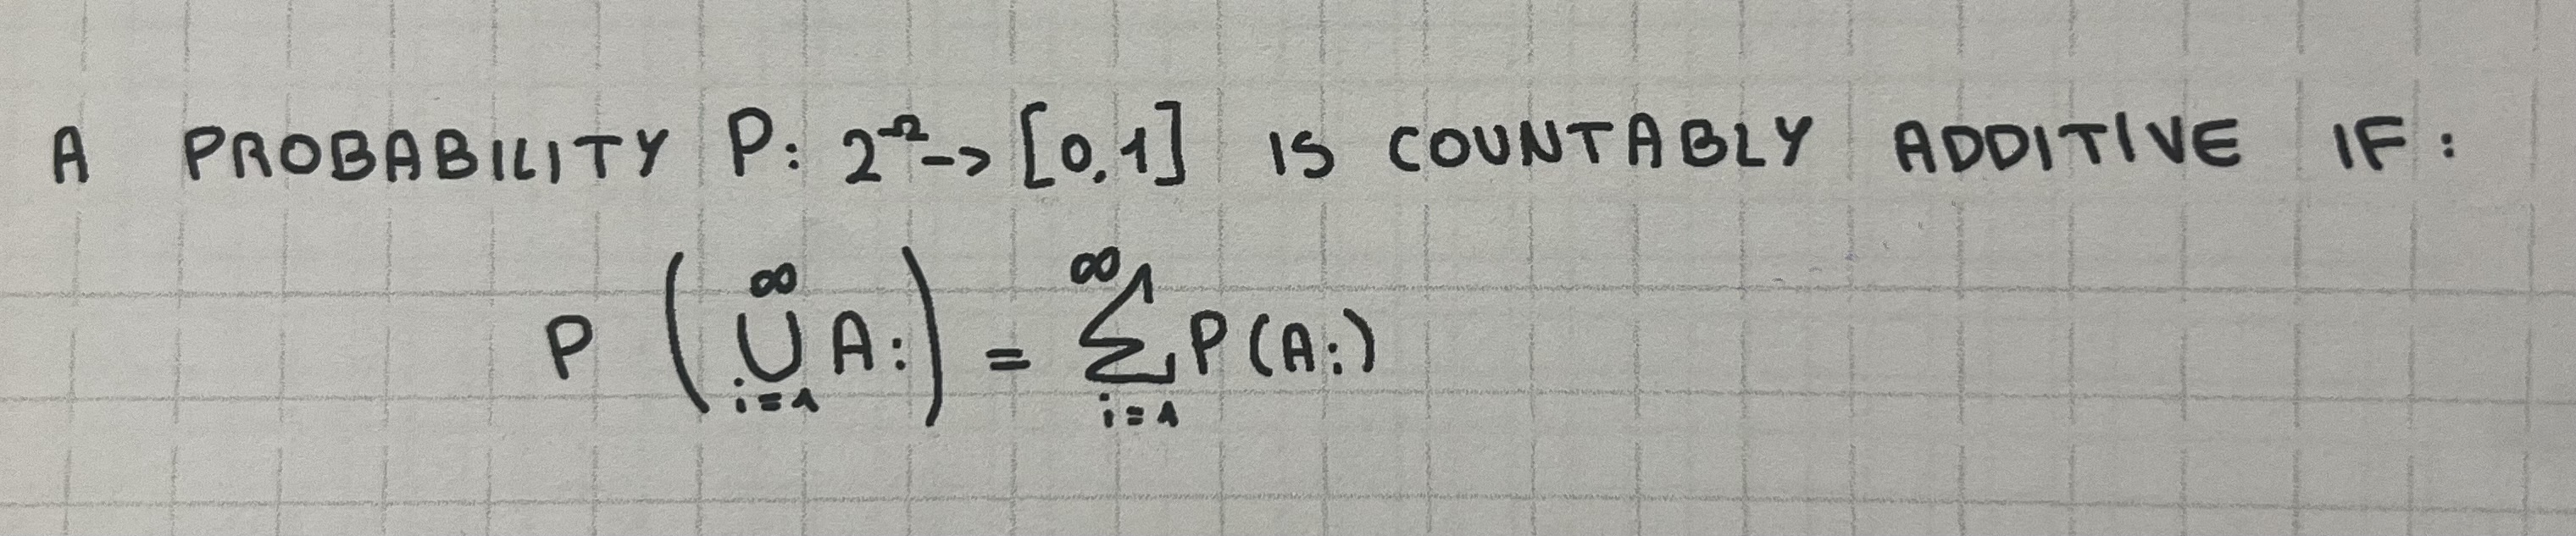 A PROBABILITY P: 2^Ω -> [0,1] IS COUNTABLY ADDITIVE IF:
P (⋃_{i=1}^{∞} Ai) = ∑_{i=1}^{∞} P(Ai)